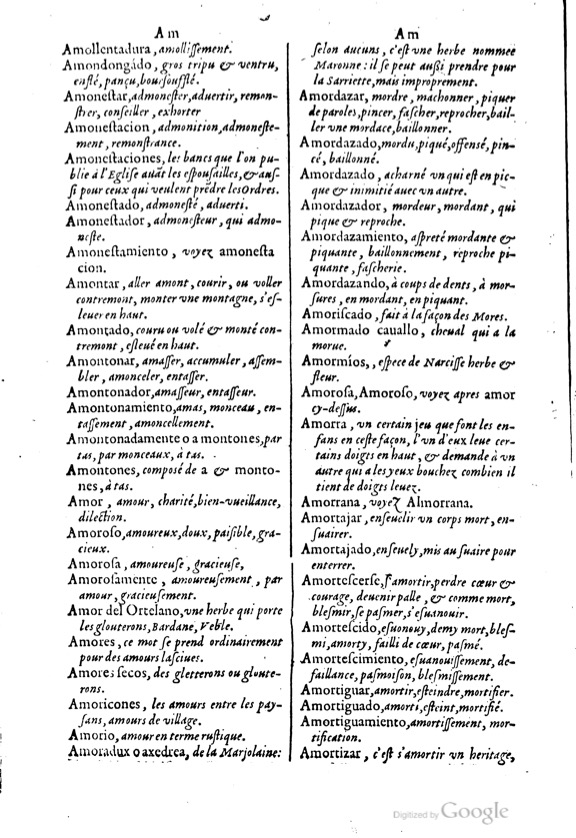 Am
Amollentadura, amolliſſement.
Amondongádo, gros tripu & ventru,
enflé, pançu, bourſoufflé.
Amoneſtar, admoneſter, aduertir, remon-
ſtrer, conſeiller, exhorter
Amoneſtacion, admonition, admoneſte-
ment, remonſtrance.
Amoneſtaciones, les bancs que l'on pu-
blie à l'Egliſe auãt les eſpouſailles, & auſ-
ſi pour ceux qui veulent prẽdre les Ordres.
Amoneſtado, admoneſté, aduerti.
Amoneſtador, admoneſteur, qui admo-
neſte.
Amoneſtamiento, voyez amoneſta
cion.
Amontar, aller amont, courir, ou voller
contremont, monter vne montagne, s'eſ-
leuer en haut.
Amontado, couru ou volé & monté con-
tremont, eſleué en haut.
Amontonar, amaſſer, accumuler, aſſem-
bler, amonceler, entaſſer.
Amontonador, amaſſeur, entaſſeur.
Amontonamiento, amas, monceau, en-
taſſement, amoncellement.
Amontonadamente o a montones, par
tas, par monceaux, à tas.
Amontones, compoſé de a & monto-
nes, à tas.
Amor, amour, charité, bien-vueillance,
dilection.
Amoroſo, amoureux, doux, paiſible, gra-
cieux.
Amoroſa, amoureuſe, gracieuſe,
Amoroſamente, amoureuſement, par
amour, gracieuſement.
Amor del Ortelano, vne herbe qui porte
les glouterons, Bardane, Veble.
Amores, ce mot ſe prend ordinairement
pour des amours laſciues.
Amores ſecos, des gletterons ou gloute-
rons.
Amoricones, les amours entre les pay-
ſans, amours de village.
Amorio, amour en terme ruſtique.
Amoradux o axedrea, de la Marjolaine:
Am
ſelon aucuns, c'eſt vne herbe nommee
Maronne: il ſe peut auſſi prendre pour
la Sarriette, mais improprement.
Amordazar, mordre, machonner, piquer
de paroles, pincer, faſcher, reprocher, bail-
ler vne mordace, baillonner.
Amordazado, mordu, piqué, offensé, pin-
cé, baillonné.
Amordazado, acharné vn qui eſt en pic-
que & inimitié auec vn autre.
Amordazador, mordeur, mordant, qui
pique & reproche.
Amordazamiento, aſpreté mordante &
piquante, baillonnement, reproche pi-
quante, faſcherie.
Amordazando, à coups de dents, à mor-
ſures, en mordant, en piquant.
Amoriſcado, fait à la façon des Mores.
Amormado cauallo, cheual qui a la
morue.
Amormíos,, eſpece de Narciſſe herbe &
fleur.
Amoroſa, Amoroſo, voyez apres amor
cy-deſſus.
Amorra, vn certain jeu que font les en-
fans en ceſte façon, l'vn d'eux leue cer-
tains doigts en haut, & demande à vn
autre qui a les yeux bouchez combien il
tient de doigts leuez.
Amorrana, voyez Almorrana.
Amortajar, enſeuelir vn corps mort, en-
ſuairer.
Amortajado, enſeuely, mis au ſuaire pour
enterrer.
Amorteſcerſe, s'amortir, perdre cœur &
courage, deuenir palle, & comme mort,
bleſmir, ſe paſmer, s'eſuanouir.
Amorteſcido, eſuonouy, demy mort, bleſ-
mi, amorty, failli de cœur, paſmé.
Amorteſcimiento, eſuanouiſſement, de-
faillance, paſmoiſon, bleſmiſſement.
Amortiguar, amortir, eſteindre, mortifier.
Amortiguado, amorti, eſteint, mortifié.
Amortiguamiento, amortiſſement, mor-
tification.
Amortizar, c'eſt s'amortir vn heritage,
Digitized by Google